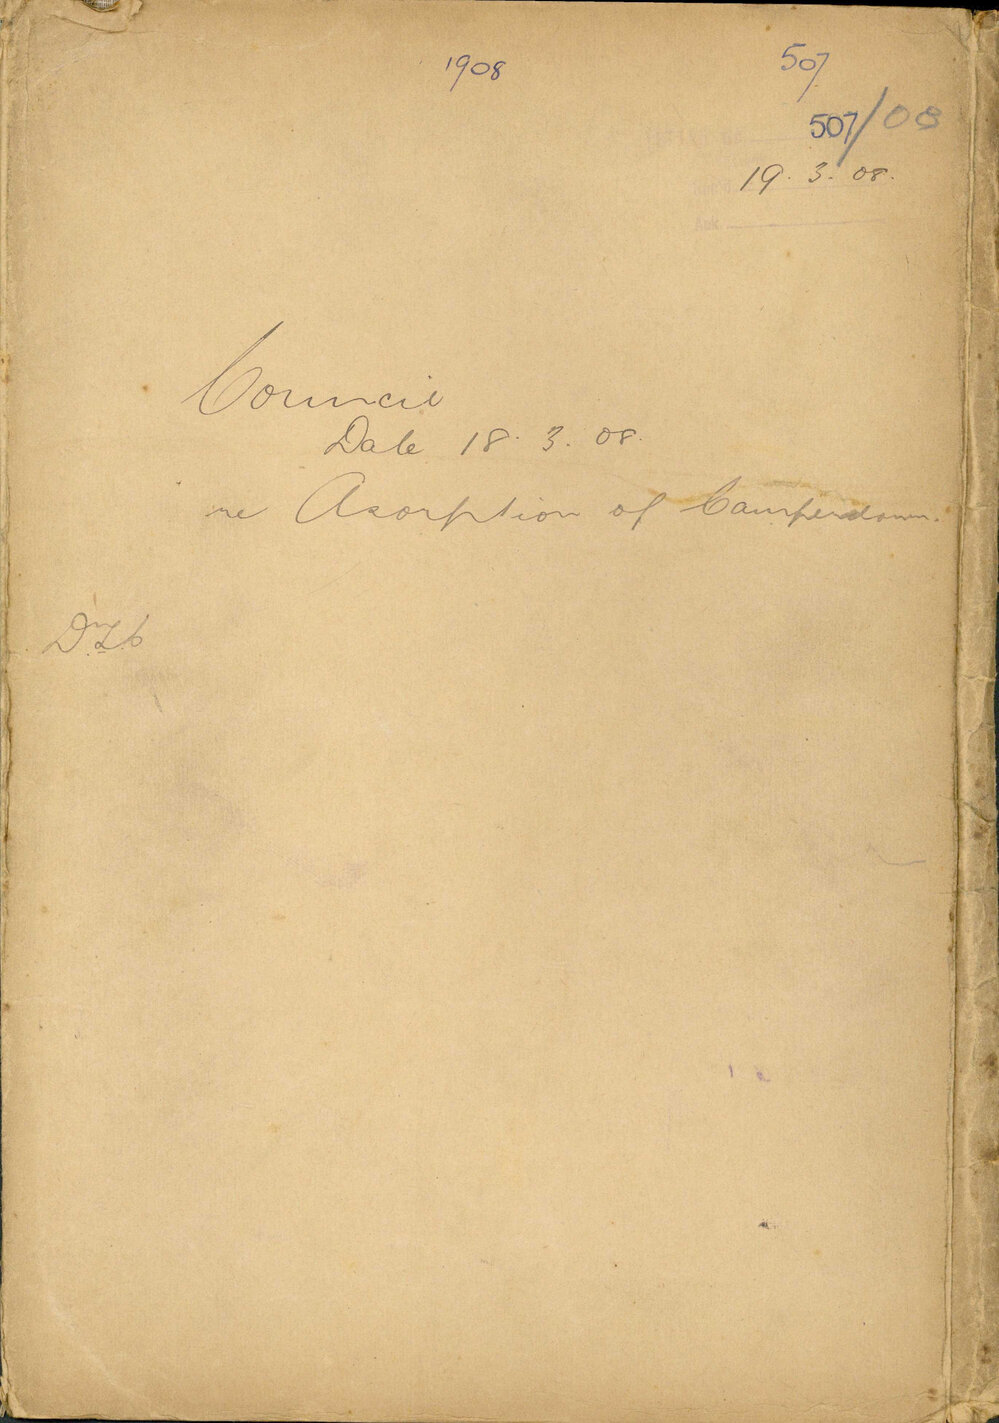 1908
507
507/08
19. 3. 08.
Council
Date 18. 3. 08.
re Asorption of Camperdown.
Ack